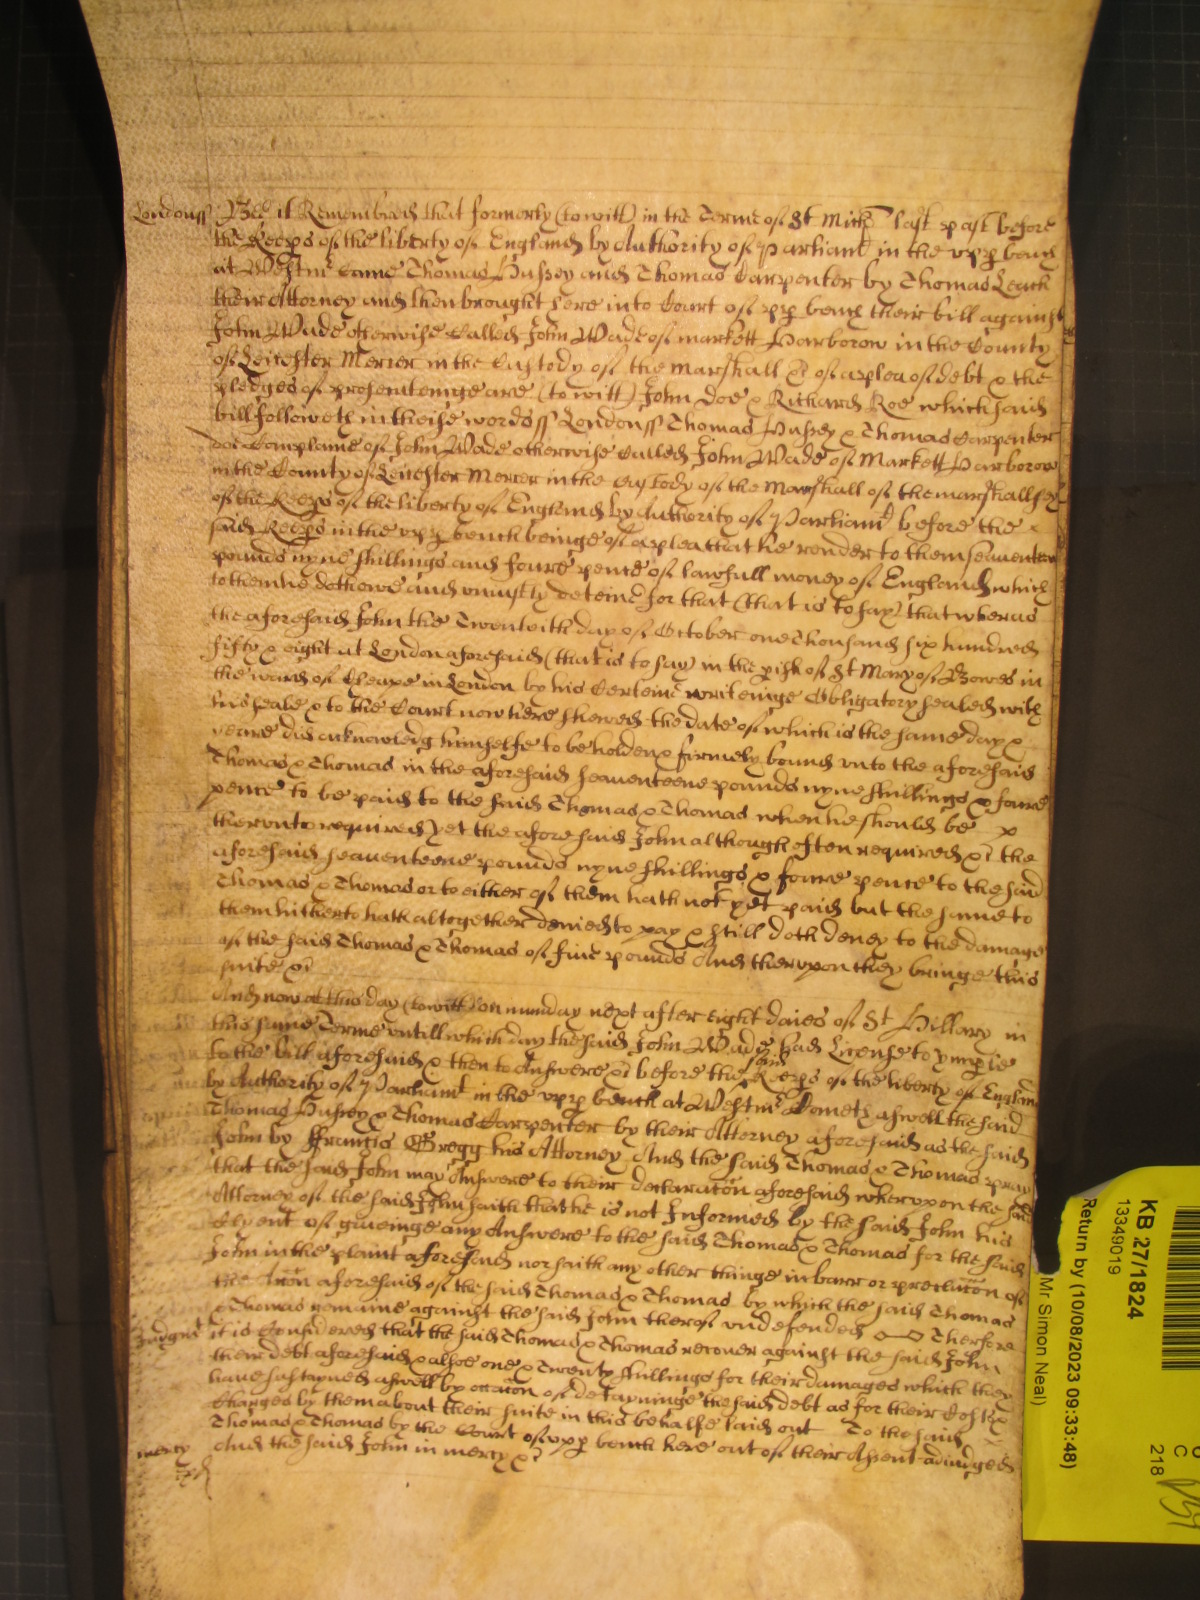 Londonss Bee it Remembred that formerly (towitt) in the Terme of St Mich last past before
the Keeps of the liberty of England by Authority of Parliamt in the upp bench
at Westmr Came Thomas Hussey and Thomas Carpenter by Thomas Leach
their Attorney and then brought here into Court of upp bench their bill against
John Wade otherwise Called John Wade of markett Harborow in the County
of Leicester Mercer in the Custody of the marshall &c of a plea of debt & the
pledges of prosecuteinge are (towitt) John Doe & Richard Roe which said
bill followeth in theise words ss Londonss Thomas Hussey & Thomas Carpenter
doe Complaine of John Wade otherwise Called John Wade of Markett Harborow
in the County of Leicester Mercer in the Custody of the Marshall of the marshallsey
of the Keeps of the liberty of England by Authority of Parliamt before the
said Keeps in the upp bench beinge of a plea that he render to them seaventeen
pounds nyne shillings and foure pence of lawfull money of England which
to them he doth owe and uniustly deteine for that (that is to say) that wheras
the aforesaid John the Twenteith day of October one Thousand six hundred
fifty & eight at London aforesaid (that is to say) in the pish of St Mary of Bowes in
the ward of Cheape in London by his Certeine writeinge Obligatory sealed with
his seale & to the Court now here shewed the date of which is the same day &
yeare did acknowledg himselfe to be holden & firmely bound unto the aforesaid
Thomas & Thomas in the aforesaid seaventeene pounds nyne shillings & foure
pence to be paid to the said Thomas & Thomas when he should be
therunto required Yet the aforesaid John although often required &c the
aforesaid seaventeene pounds nyne shillings & foure pence to the said
Thomas & Thomas or to either of them hath not yet paid but the same to
them hitherto hath altogether denied to pay & still doth deney to the damage
of the said Thomas & Thomas of five pounds And therupon they bringe this
suite &c
And now at this day (towitt) on munday next after eight daies of St Hillary in
this same Terme untill which day the said John Wade had License to ymparle
to the bill aforesaid & then to Answere &c before the said Keeps of the liberty of England
by Authority of Parliamt in the upp bench at Westmr Cometh aswell the said
Thomas Hussey & Thomas Carpenter by their Attorney aforesaid as the said
John by Francis Gregg his Attorney And the said Thomas & Thomas pray
that the said John may Answere to their declaracon aforesaid wherupon the said
Attorney of the said John saith that he is not Informed by the said John his
Clyent of giveinge any Answere to the said Thomas & Thomas for the said
John in the plaint aforesaid nor saith any other thinge in barr or preclucon of
the Accon aforesaid of the said Thomas & Thomas by which the said Thomas
& Thomas remaine against the said John therof undefended Therfore
Judgmt it is Considered that the said Thomas & Thomas recover against the said John
their debt aforesaid & alsoe one & Twenty shillings for their damages which they
have sustayned aswell by occacon of detayninge the said debt as for their Costs &
Charges by them about their suite in this behalfe laid out To the said
Thomas & Thomas by the Court of upp bench here out of their Assent adiudged
mercy And the said John in mercy &c
KB 27/1824
13349019
Return by (10/08/2023 09:33:48)
(Mr Simon Neal)
C
218